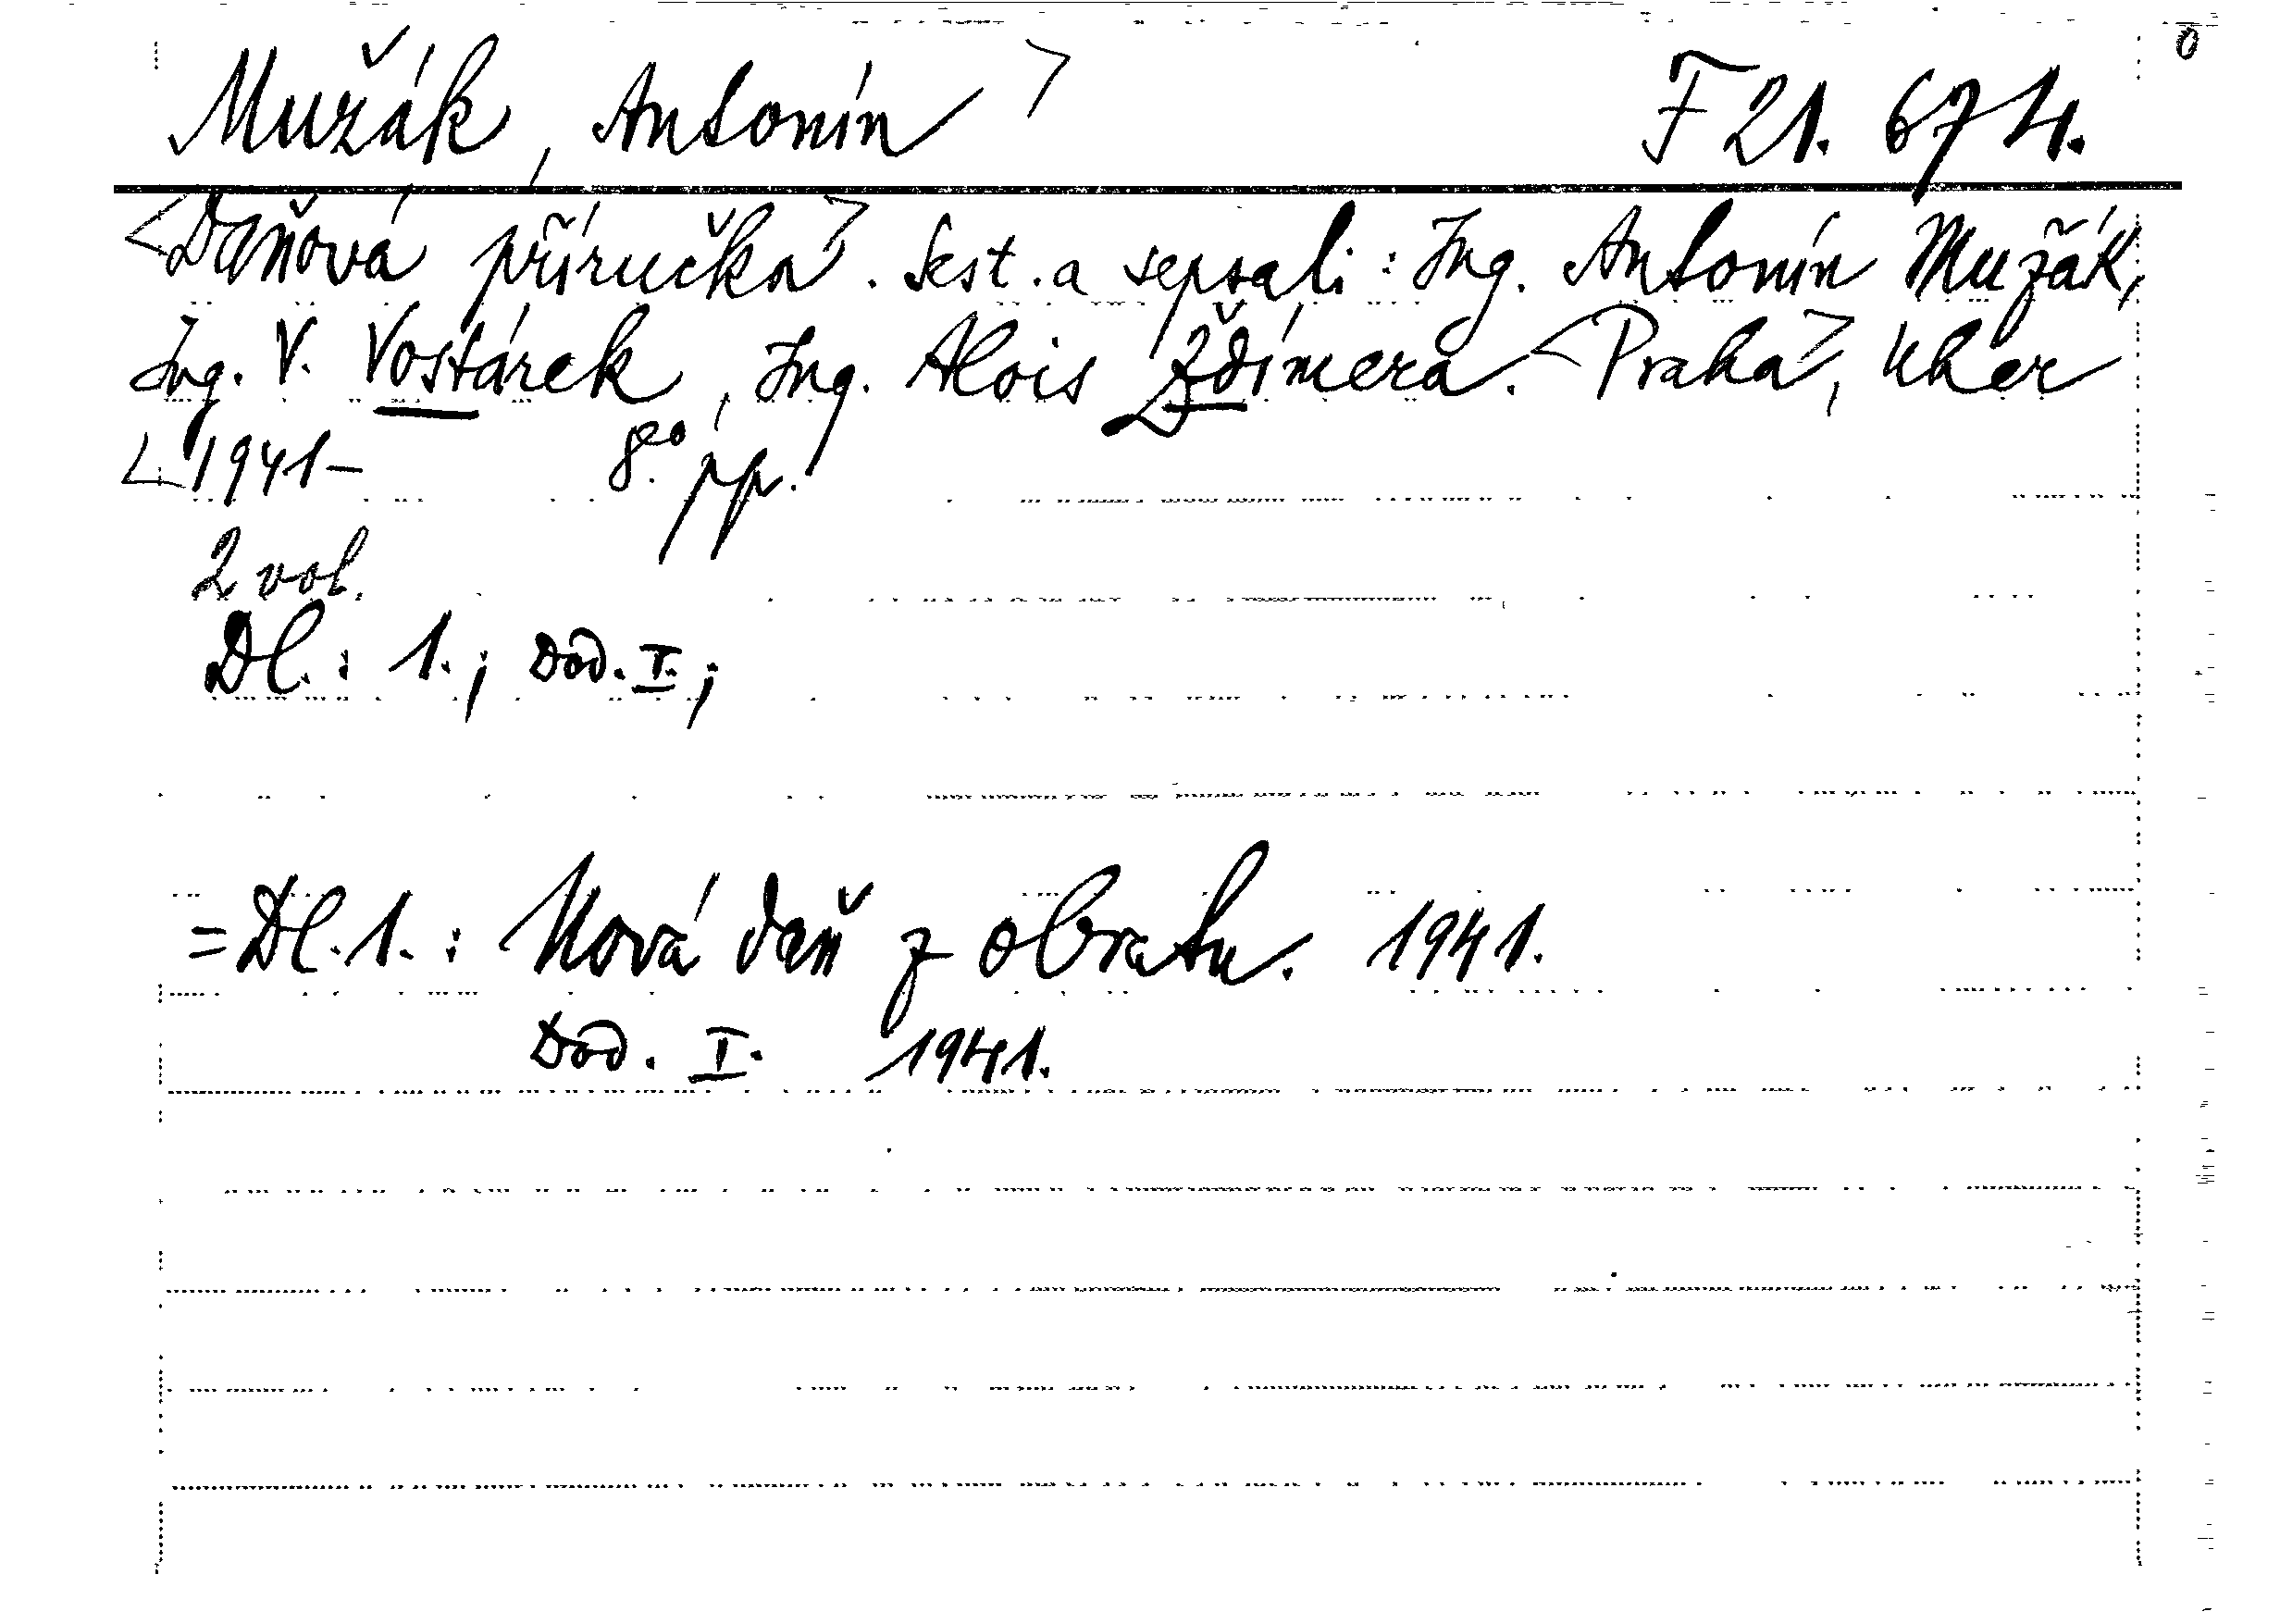 Mužák, Antonín > F 21.674.
0
<Daňová příručka>. Sest. a sepsali: Ing. Antonín Mužák,
Ing. V. Vostárek, Ing. Alois Ždímera. <Praha>, Kher
<1941- 8° pp.
2 vol.
Dl.: 1.; Dod. I.;
= Dl. 1.: Nová daň z obratu. 1941.
Dod. I. 1941.